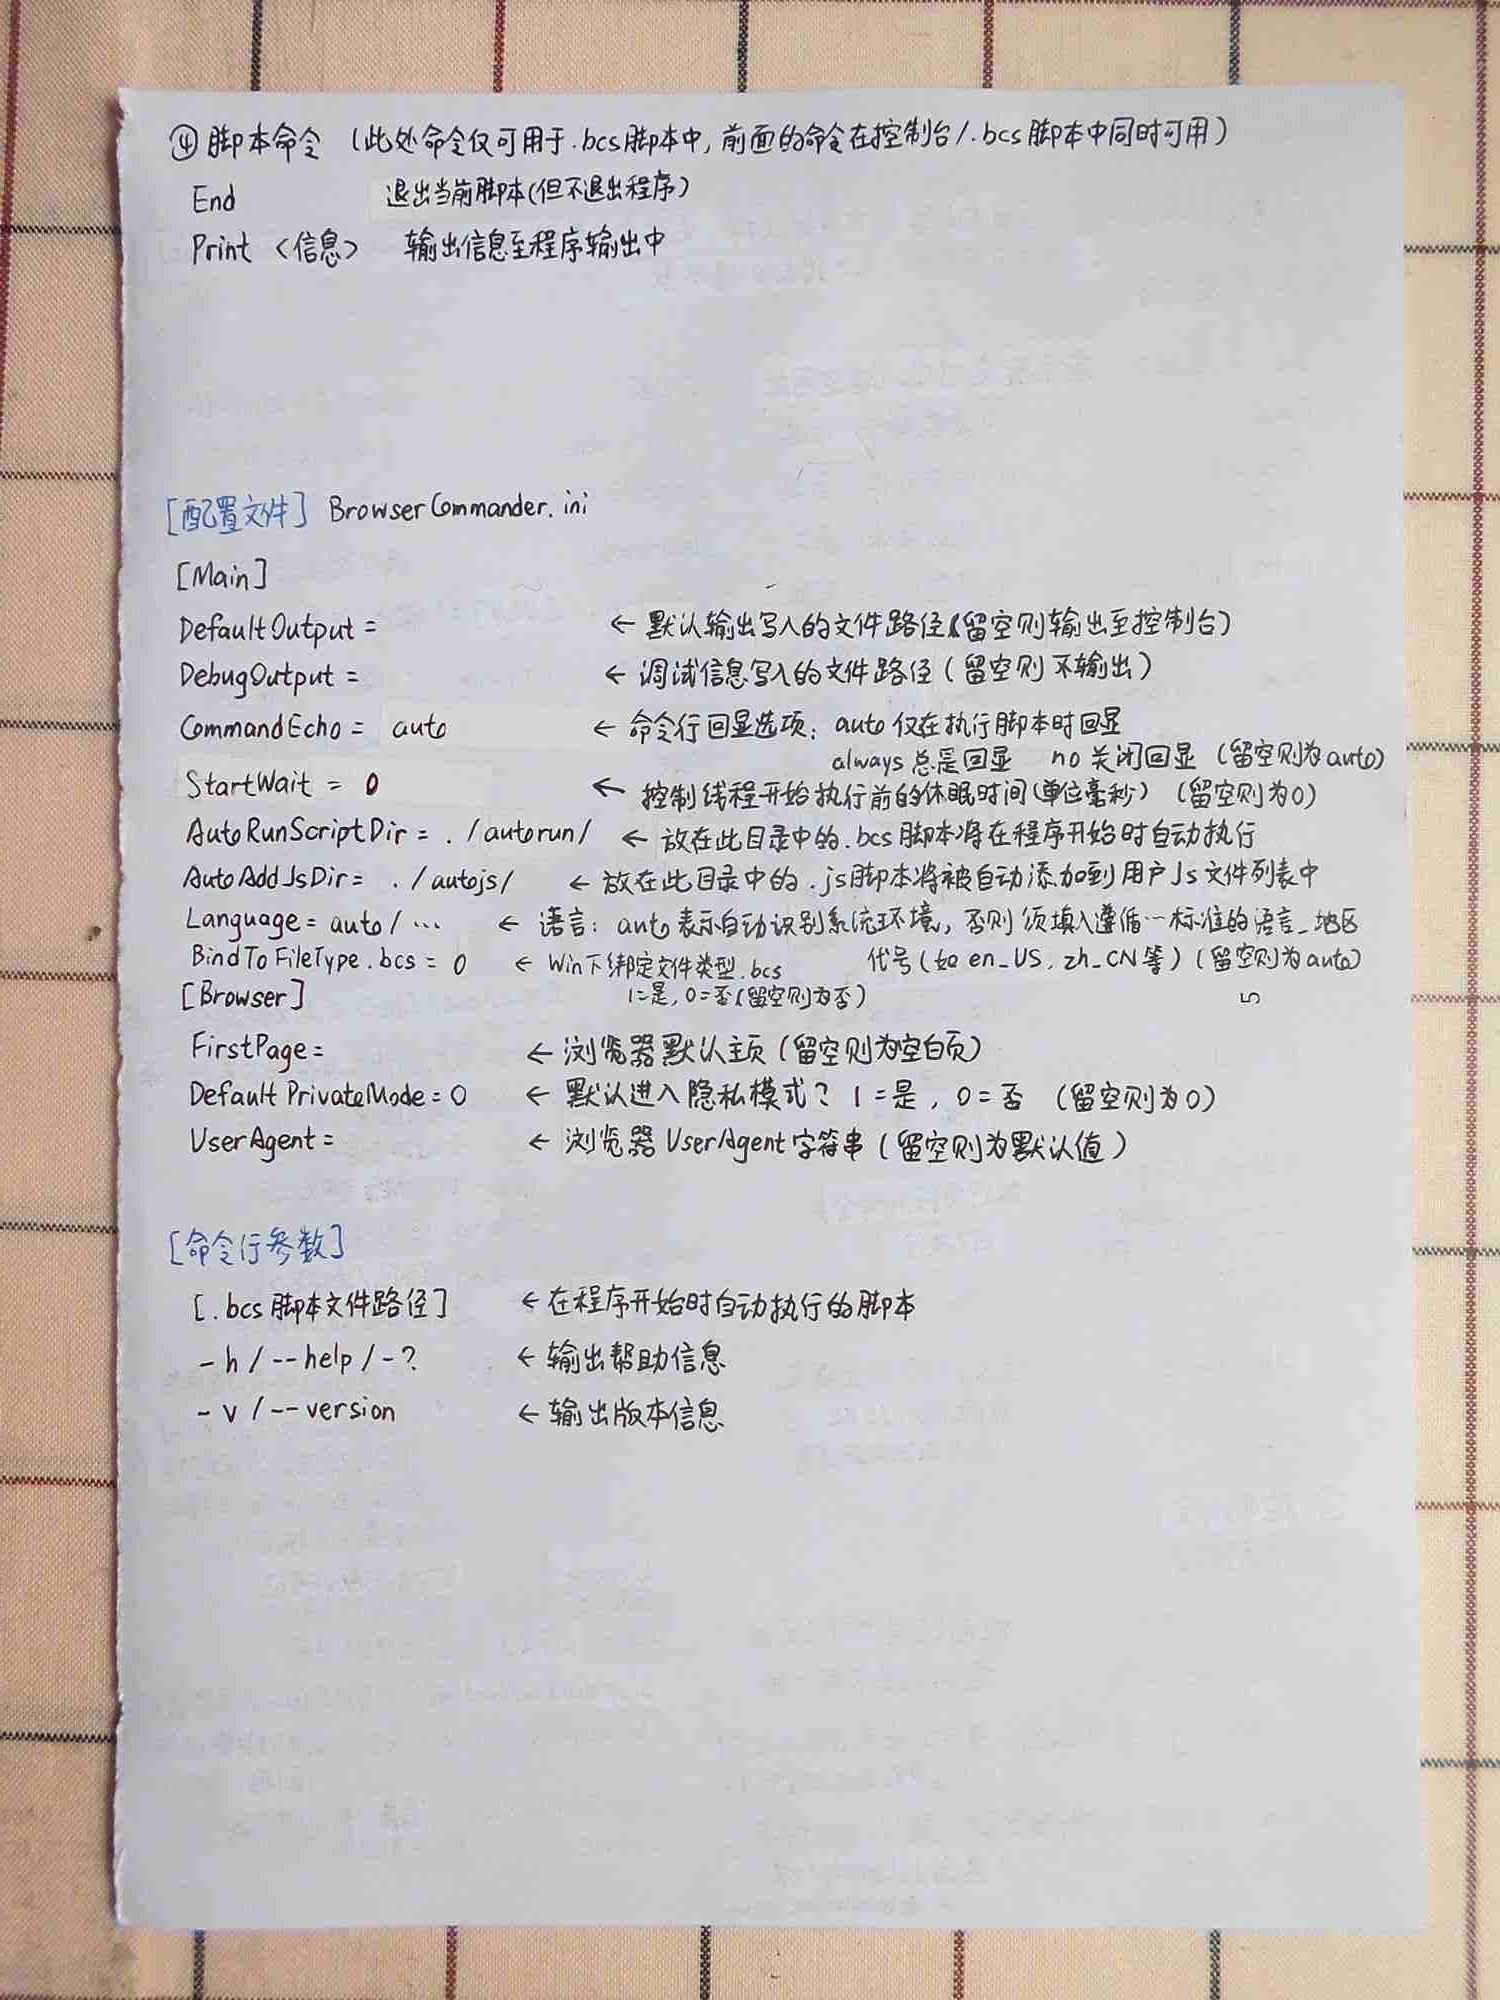 ④脚本命令 (此处命令仅可用于.bcs脚本中,前面的命令在控制台/.bcs脚本中同时可用)
End 退出当前脚本(但不退出程序)
Print <信息> 输出信息至程序输出中
[配置文件] BrowserCommander.ini
[Main]
DefaultOutput= ← 默认输出写入的文件路径(留空则输出至控制台)
DebugOutput= ← 调试信息写入的文件路径(留空则不输出)
CommandEcho= auto ← 命令行回显选项: auto 仅在执行脚本时回显
always 总是回显 no 关闭回显 (留空则为auto)
StartWait = 0 ← 控制线程开始执行前的休眠时间(单位毫秒) (留空则为0)
AutoRunScriptDir= ./autorun/ ← 放在此目录中的.bcs脚本将在程序开始时自动执行
AutoAddJsDir= ./autojs/ ← 放在此目录中的.js脚本将被自动添加到用户Js文件列表中
Language= auto/… ← 语言: auto表示自动识别系统环境, 否则须填入遵循…标准的语言_地区
代号(如en_US, zh_CN等)(留空则为auto)
BindToFileType.bcs= 0 ← Win下绑定文件类型.bcs
1=是, 0=否(留空则为否)
5
[Browser]
FirstPage= ← 浏览器默认主页(留空则为空白页)
DefaultPrivateMode=0 ← 默认进入隐私模式? 1=是, 0=否 (留空则为0)
UserAgent= ← 浏览器UserAgent字符串(留空则为默认值)
[命令行参数]
[.bcs脚本文件路径] ← 在程序开始时自动执行的脚本
-h/--help/-? ← 输出帮助信息
-v/--version ← 输出版本信息